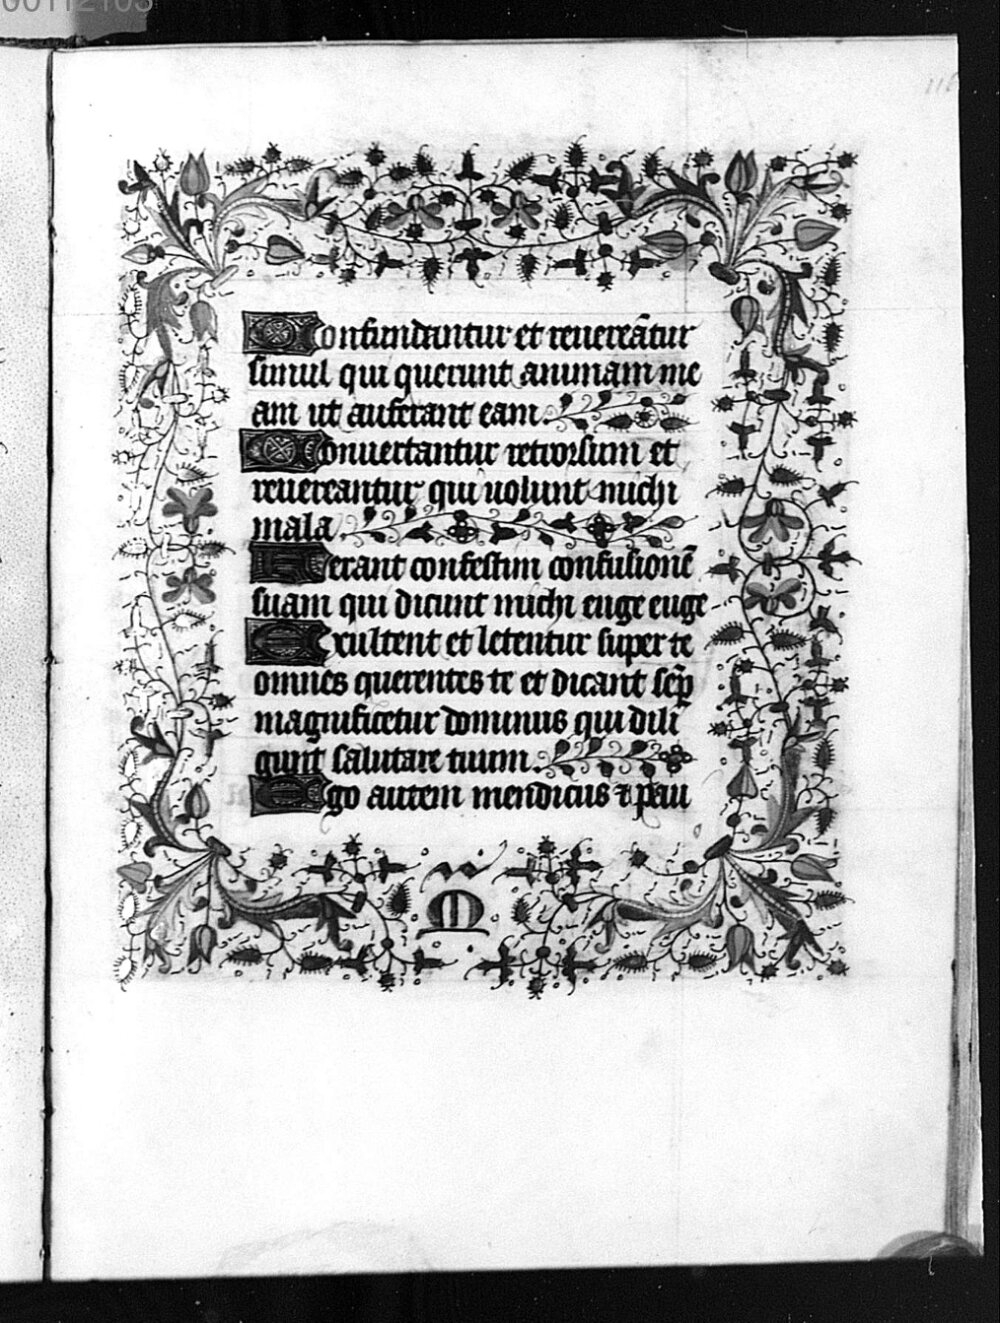 00112103
Confundantur et reuereãtur
simul qui querunt animam me
am ut auferant eam.
Conuertantur retrorsum et
reuereantur qui uolunt michi
mala.
Ferant confestim confusionẽ
suam qui dicunt michi euge euge
Exultent et letentur super te
omnes querentes te et dicant sẽp
magnificetur dominus qui dili
gunt salutare tuum.
Ego autem mendicus ⁊ pau
M